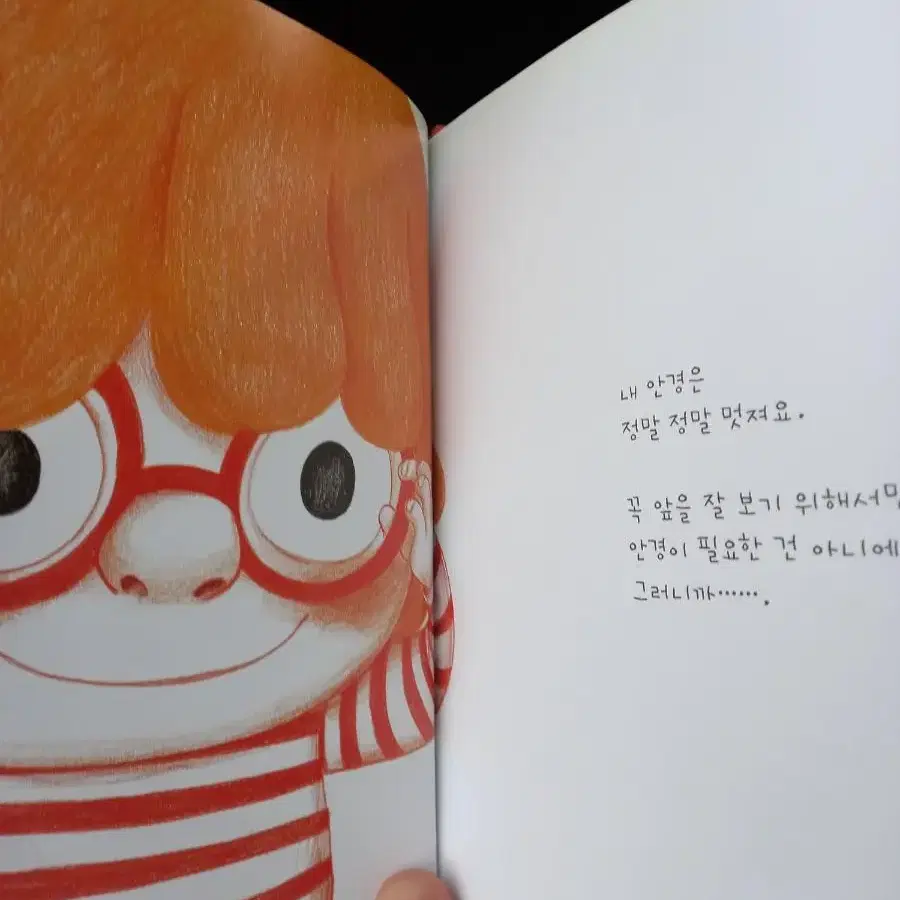 내 안경은
정말 정말 멋져요.
꼭 앞을 잘 보기 위해서
안경이 필요한 건 아니에
그러니까…….